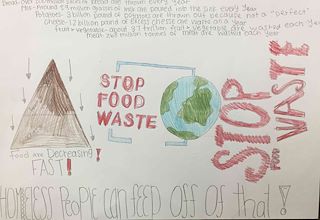 thrown every year
Milk- Around 5.9 million glasses of milk are poured into the sink every year
Potatoes- 3 billion pound of potatoes are thrown out because not a "perfect"
cheese- 1.2 billion pound of excess cheese are wasted on a year
fruit + vegetable- about 3.7 trillion fruit + vegetable are wasted each year
Meat- million tonnes of meat are wasted each year
STOP
FOOD
WASTE
STOP
FOOD
WASTE
food are Decreasing
FAST!!
HOMELESS PEOPLE can FEED OFF OF that!